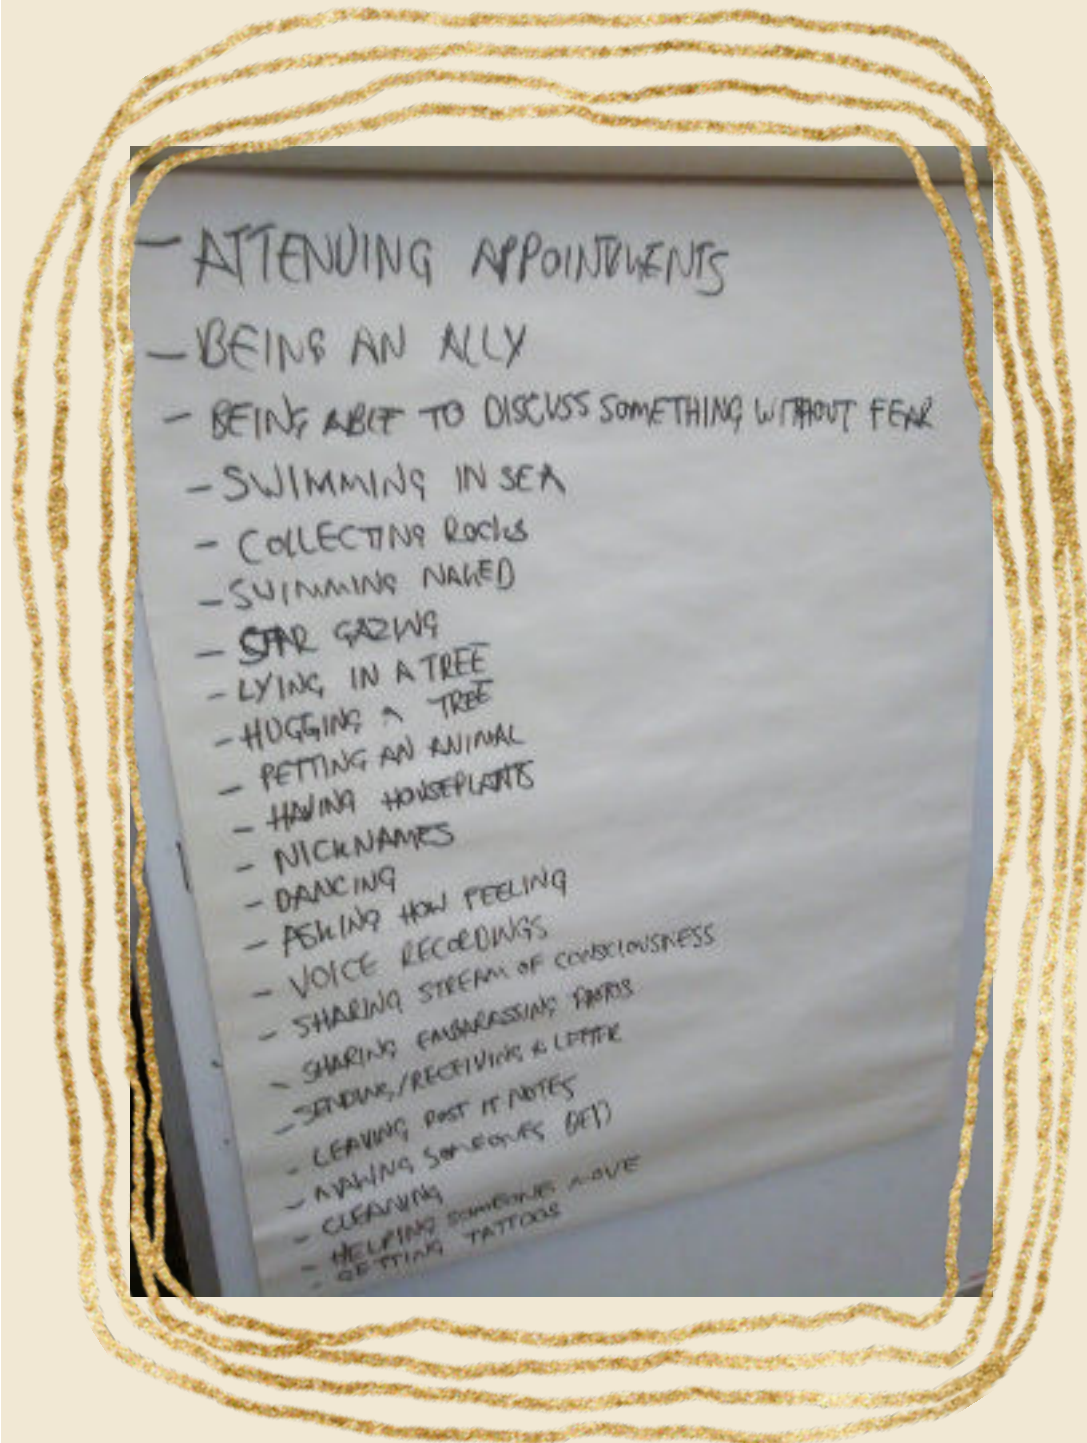 - ATTENDING APPOINTMENTS
- BEING AN ALLY
- BEING ABLE TO DISCUSS SOMETHING WITHOUT FEAR
- SWIMMING IN SEA
- COLLECTING ROCKS
- SWIMMING NAKED
- STAR GAZING
- LYING IN A TREE
- HUGGING A TREE
- PETTING AN ANIMAL
- HAVING HOUSEPLANTS
- NICKNAMES
- DANCING
- ASKING HOW FEELING
- VOICE RECORDINGS
- SHARING STREAM OF CONSCIOUSNESS
- SHARING EMBARASSING PHOTOS
- SENDING/RECEIVING A LETTER
- LEAVING POST IT NOTES
- MAKING SOMEONES BED
- CLEANING
- HELPING SOMEONE MOVE
- GETTING TATTOOS